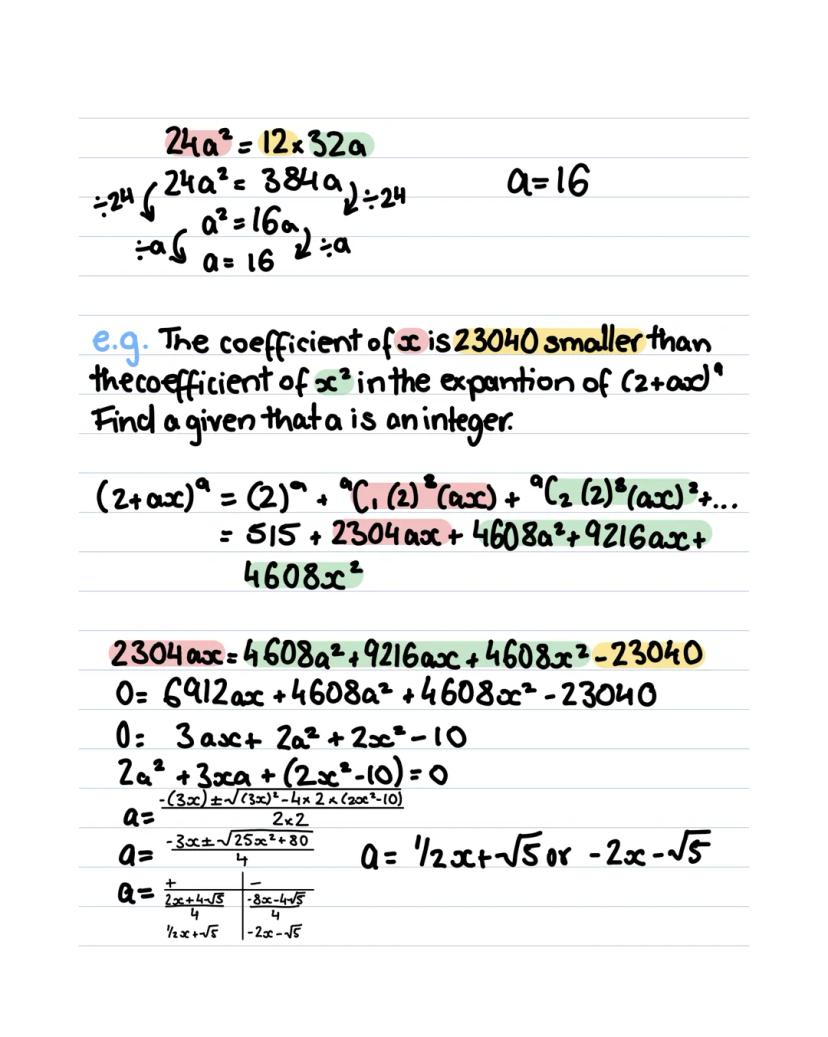 24a² = 12 × 32a
÷24 24a² = 384a ÷24 a=16
a² = 16a
÷a a = 16 ÷a
e.g. The coefficient of x is 23040 smaller than
the coefficient of x² in the expantion of (2+ax)⁹
Find a given that a is an integer.
(2+ax)⁹ = (2)⁹ + ⁹C₁(2)⁸(ax) + ⁹C₂(2)⁸(ax)²+...
= 515 + 2304ax + 4608a²+9216ax+
4608x²
2304ax = 4608a²+9216ax+4608x²-23040
0= 6912ax +4608a² +4608x² -23040
0= 3ax+ 2a² + 2x² -10
2a² +3xa + (2x²-10)=0
a= -(3x)±√(3x)²-4×2×(2x²-10) / 2×2
a= -3x±√25x²+80 / 4 a= 1/2x+√5 or -2x-√5
a= + | -
2x+4√5 / 4 | -8x-4√5 / 4
1/2x+√5 | -2x-√5